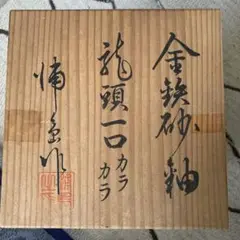 金鉄砂釉
龍頭一口カラ
カラ
作